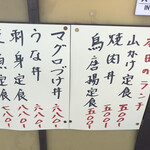 本日のランチ
山かけ定食 五〇〇
焼肉丼 五〇〇
鳥唐揚定食
マグロづけ丼 六八〇
うな丼 六八〇
刺身定食 八八〇
魚定食 八八〇